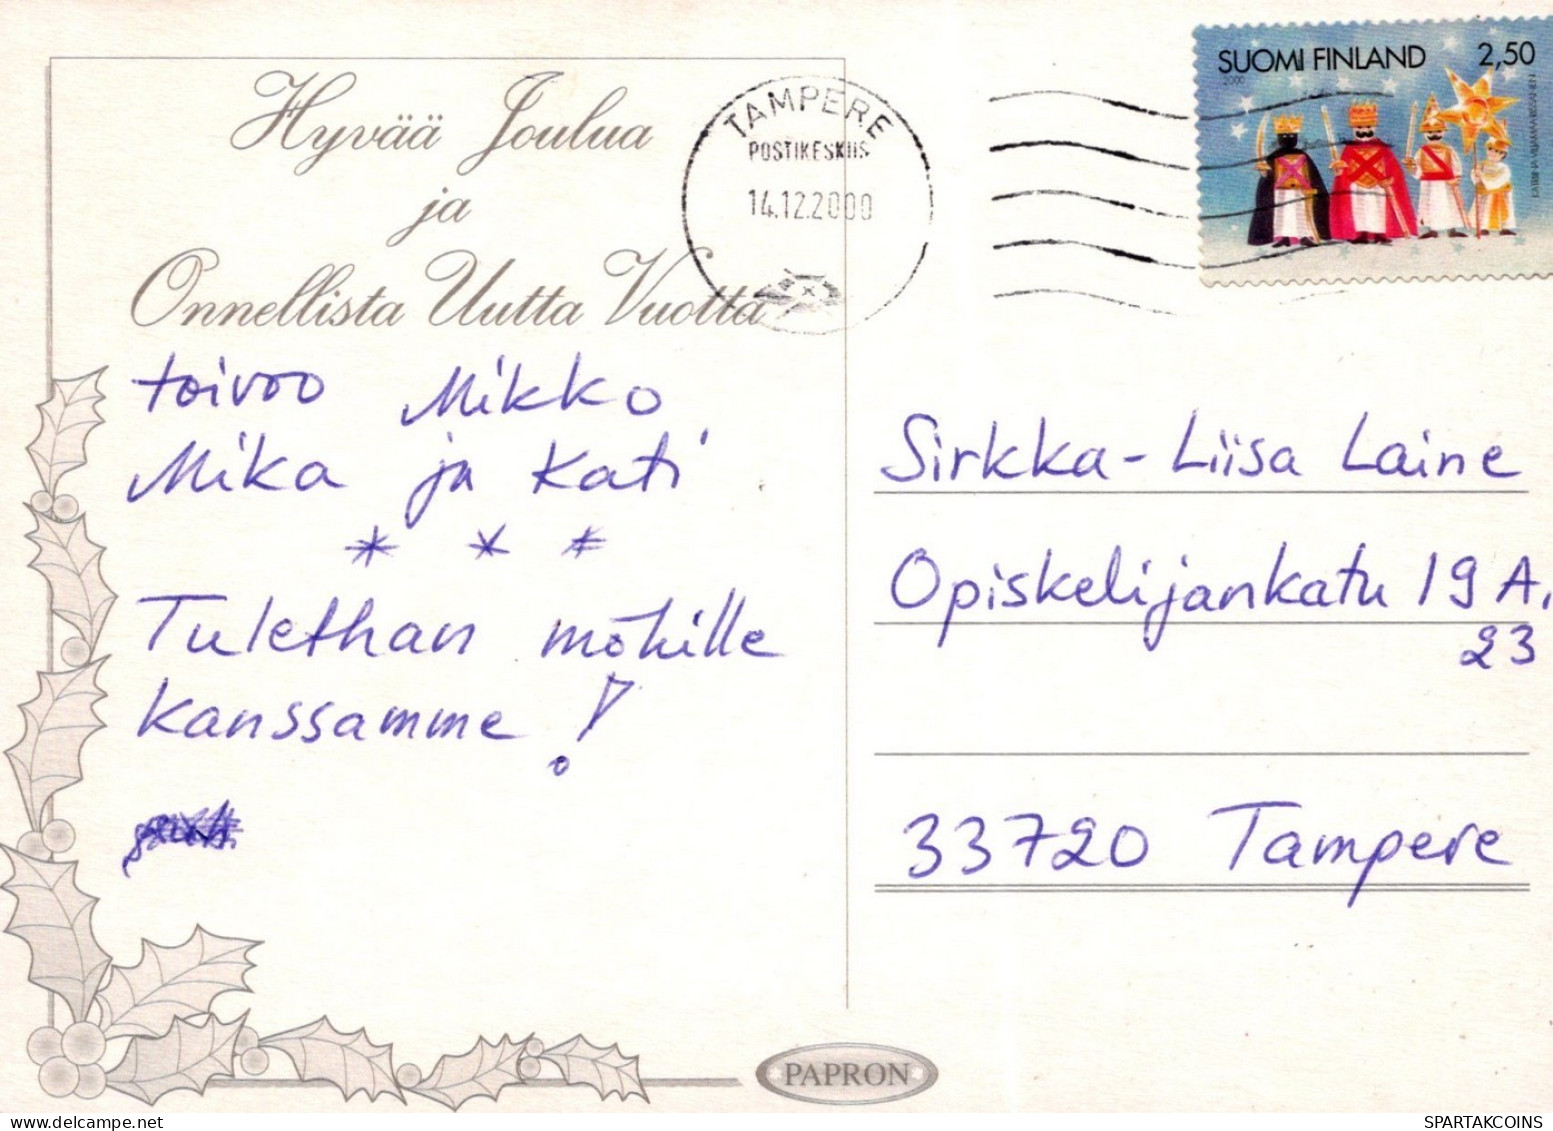 Hyvää Joulua
ja
Onnellista Uutta Vuotta
toivoo Mikko
Mika ja Kati
* * *
Tulethan mökille
kanssamme!
TAMPERE
POSTIKESKUS
14.12.2000
SUOMI FINLAND 2,50
2000
Sirkka-Liisa Laine
Opiskelijankatu 19 A,
23
33720 Tampere
PAPRON
SPARTAKCOINS